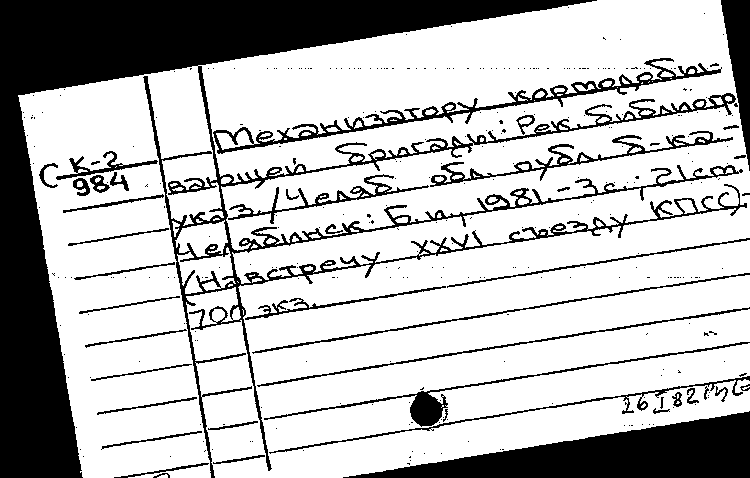 Механизатору кормодобы-
С К-2
984
вающей бригады: Рек. библиогр.
указ. / Челяб. обл. публ. б-ка.-
Челябинск: Б.и., 1981.- 3с.; 21cm.-
(Навстречу XXVI съезду КПСС)-
700 экз.
26 I 82